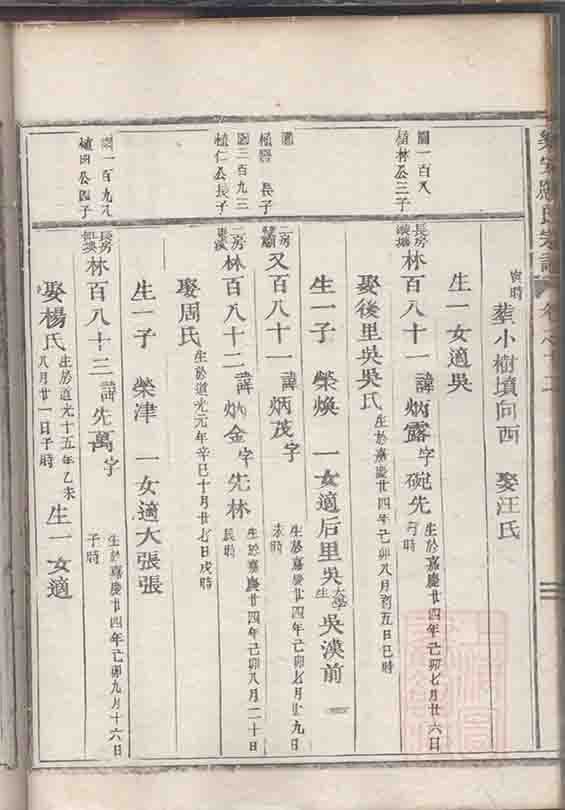 寅時 葬小樹墳向西 娶汪氏
生一女適吳
園一百又
植林公三子
長房 林百八十一 諱炳露 字硯先 生於嘉慶廿四年己卯七月廿六日 時
娶後里吳吳氏 生於嘉慶廿四年己卯八月初五日巳時
生一子 榮煥 一女適后里吳 太學生 吳漢前
長子
二房 又百八十一 諱炳茂 字 生於嘉慶廿四年己卯七月廿九日 未時
園三百九三
植仁公長子
二房 林百八十二 諱炳金 字先林 生於嘉慶廿四年己卯八月二十日 辰時
娶周氏 生於道光元年辛巳十月廿七日戌時
生一子 榮津 一女適大張張
園一百九八
植田公四子
長房 林百八十三 諱先萬 字 生於嘉慶廿四年己卯九月十六日 子時
娶楊氏 生於道光十五年乙未八月廿一日子時 生一女適